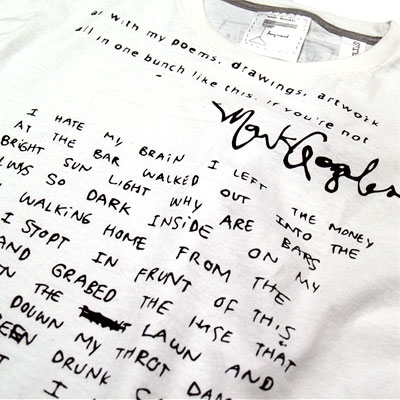 al with my poems, drawings, artwork
all in one bunch like this. if you're not
I HATE MY BRAIN I LEFT THE MONEY
AT THE BAR WALKED OUT INTO THE
BRIGHT SUN LIGHT WHY ARE BARS
SO DARK INSIDE ON MY
WALKING HOME FROM THE
I STOPT IN FRUNT OF THIS
AND GRABED THE HOSE THAT
THE LAWN AND
DOUWN MY THROT
DRUNK
I